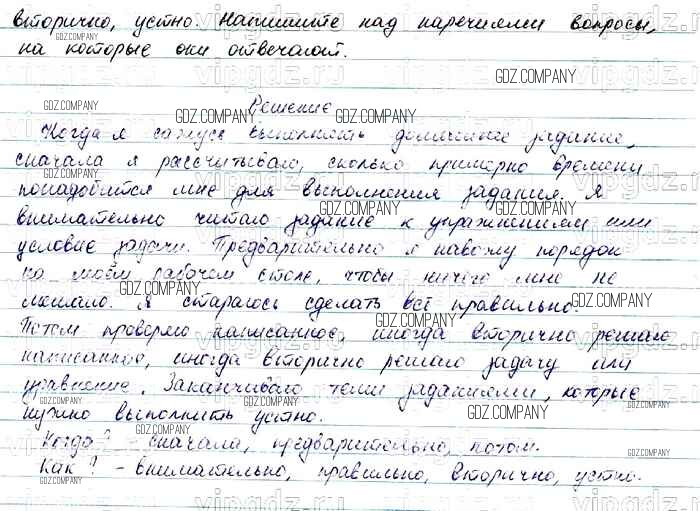 вторично, устно. Напишите над наречиями вопросы,
на которые они отвечают.
Решение
Когда я сажусь выполнять домашнее задание,
сначала я рассчитываю, сколько примерно времени
понадобится мне для выполнения задания. Я
внимательно читаю задание к упражнениям или
условие задачи. Предварительно я навожу порядок
на моём рабочем столе, чтобы ничего мне не
мешало. Я стараюсь сделать всё правильно.
Потом проверяю написанное, иногда вторично решаю
написанное, иногда вторично решаю задачу или
уравнение. Заканчиваю теми заданиями, которые
нужно выполнить устно.
Когда? - сначала, предварительно, потом.
Как? - внимательно, правильно, вторично, устно.
GDZ.COMPANY
vipgdz.ru